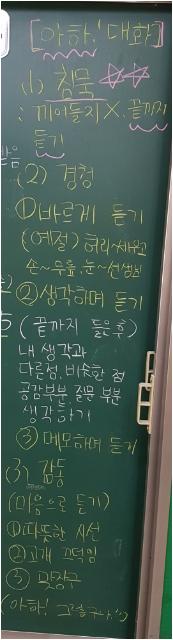 [아하! 대화]
(1) 침묵 ☆☆
: 끼어들지 X. 끝까지
듣기
(2) 경청
①바르게 듣기
(예절) 허리~세우고
손~무릎. 눈~선생님
②생각하며 듣기
(끝까지 들은 후)
내 생각과
다른점, 비슷한 점
공감부분 질문 부분
생각하기
③메모하며 듣기
(3) 감동
(마음으로 듣기)
①따뜻한 시선
②고개 끄덕임
③맞장구
(아하! 그렇구나~)